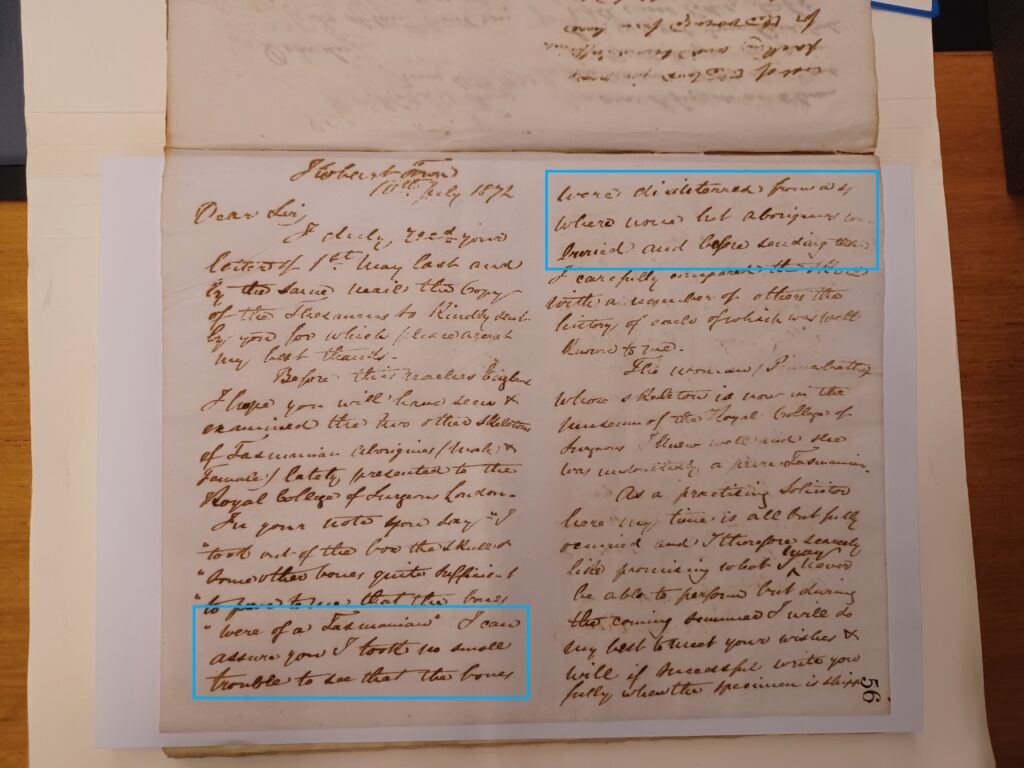 Hobart Town
10th July 1872
Dear Sir,
I duly recd your
letter of 1st May last and
by the same mail the Copy
of the Thesaurus so kindly sent
by you for which please accept
my best thanks.
Before this reaches England
I hope you will have seen &
examined the two other skeletons
of Tasmanian Aborigines (Male &
Female) lately presented to the
Royal College of Surgeons London.
In your note you say "I
"took out of the box the skull &
"some other bones quite sufficient
"to prove to me that the bones
"were of a Tasmanian" I can
assure you I took no small
trouble to see that the bones
were disinterred from a
where none but aborigines
buried and before sending them
I carefully compared the skull
with a number of others the
history of each of which was well
known to me.
The woman
whose skeleton is now in the
museum of the Royal College of
Surgeons I knew well and she
was undoubtedly a pure Tasmanian.
As a practising Solicitor
here my time is all but fully
occupied and I therefore scarcely
like promising what I may never
be able to perform but during
the coming summer I will do
my best to meet your wishes &
will if successful write you
fully when the specimen is
56